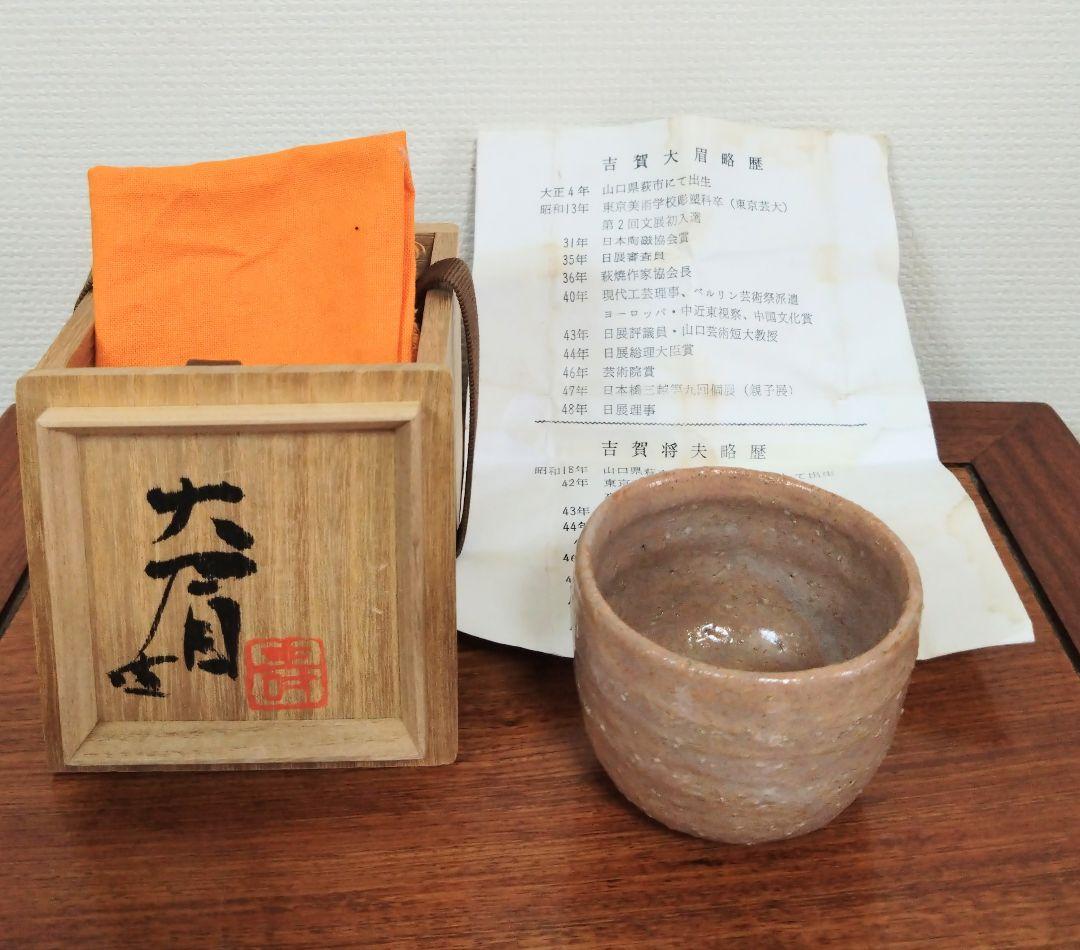 吉賀大眉略歴
大正4年 山口県萩市にて出生
昭和13年 東京美術学校彫塑科卒（東京芸大）
第2回文展初入選
31年 日本陶磁協会賞
35年 日展審査員
36年 萩焼作家協会長
40年 現代工芸理事、ベルリン芸術祭派遣
ヨーロッパ・中近東視察、中国文化賞
43年 日展評議員・山口芸術短大教授
44年 日展総理大臣賞
46年 芸術院賞
47年 日本橋三越第九回個展（親子展）
48年 日展理事
吉賀将夫略歴
昭和18年 山口県 にて出生
42年 東京
43年
44年
46
大眉